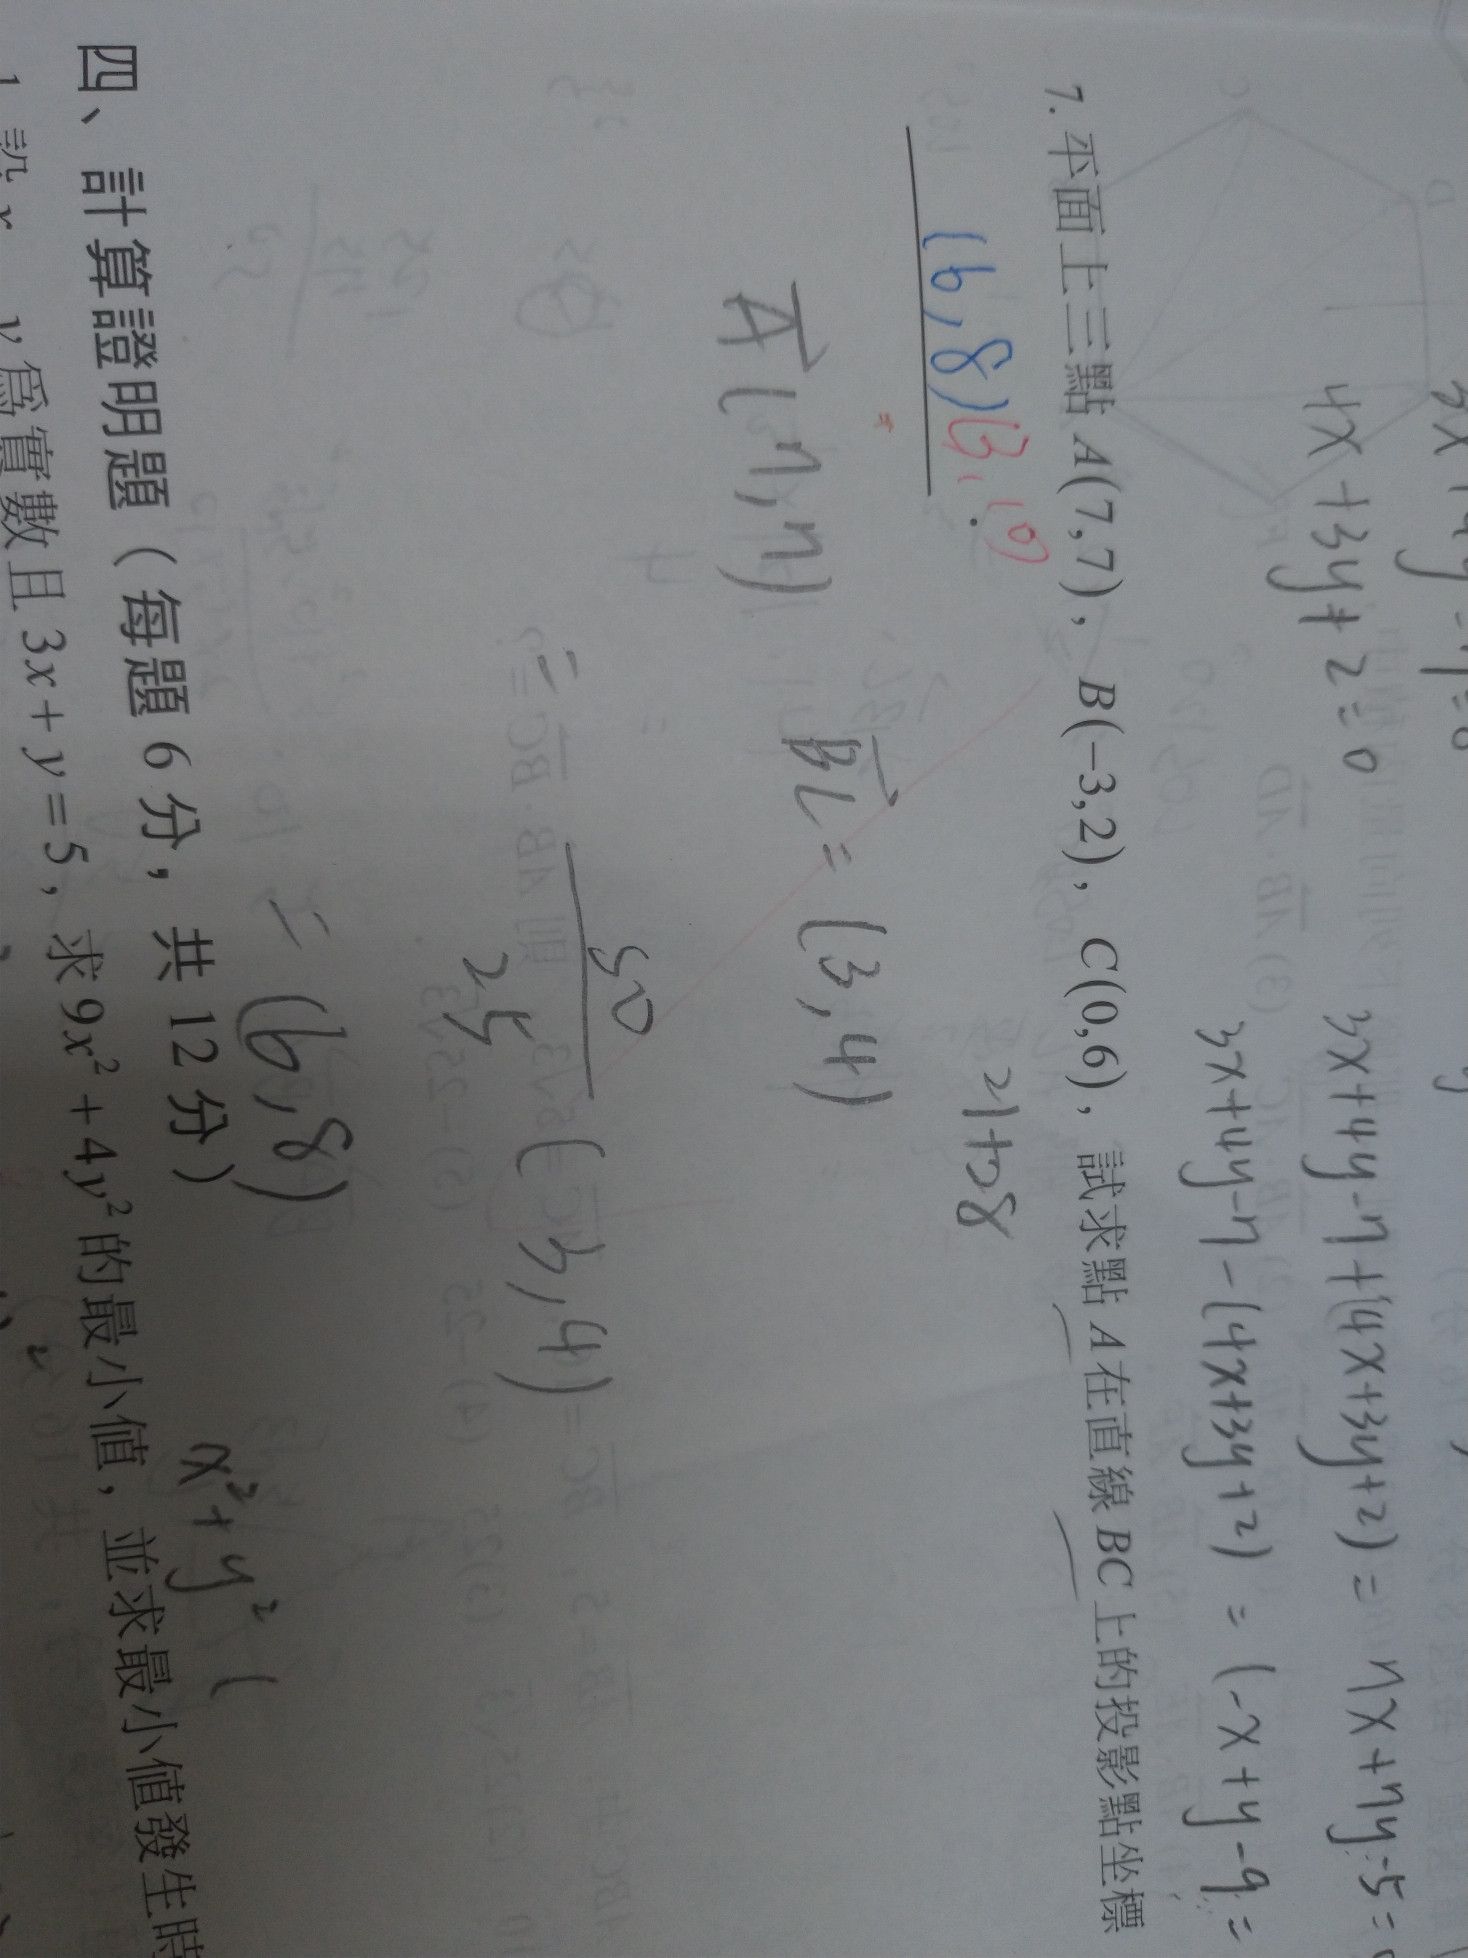 4x+3y+2=0
3x+4y-7+(4x+3y+2)=7x+7y-5=
3x+4y-7-(4x+3y+2)=(-x+y-9=
7. 平面上三點 A(7,7), B(−3,2), C(0,6), 試求點 A 在直線 BC 上的投影點坐標
(6,8)(3,10)
21+28
A(7,7) BC=(3,4)
50
25
(3,4)=
=(6,8)
x²+y²(
四、計算證明題(每題 6 分, 共 12 分)
1. 設 x、y 為實數且 3x+y=5, 求 9x²+4y² 的最小值, 並求最小值發生時